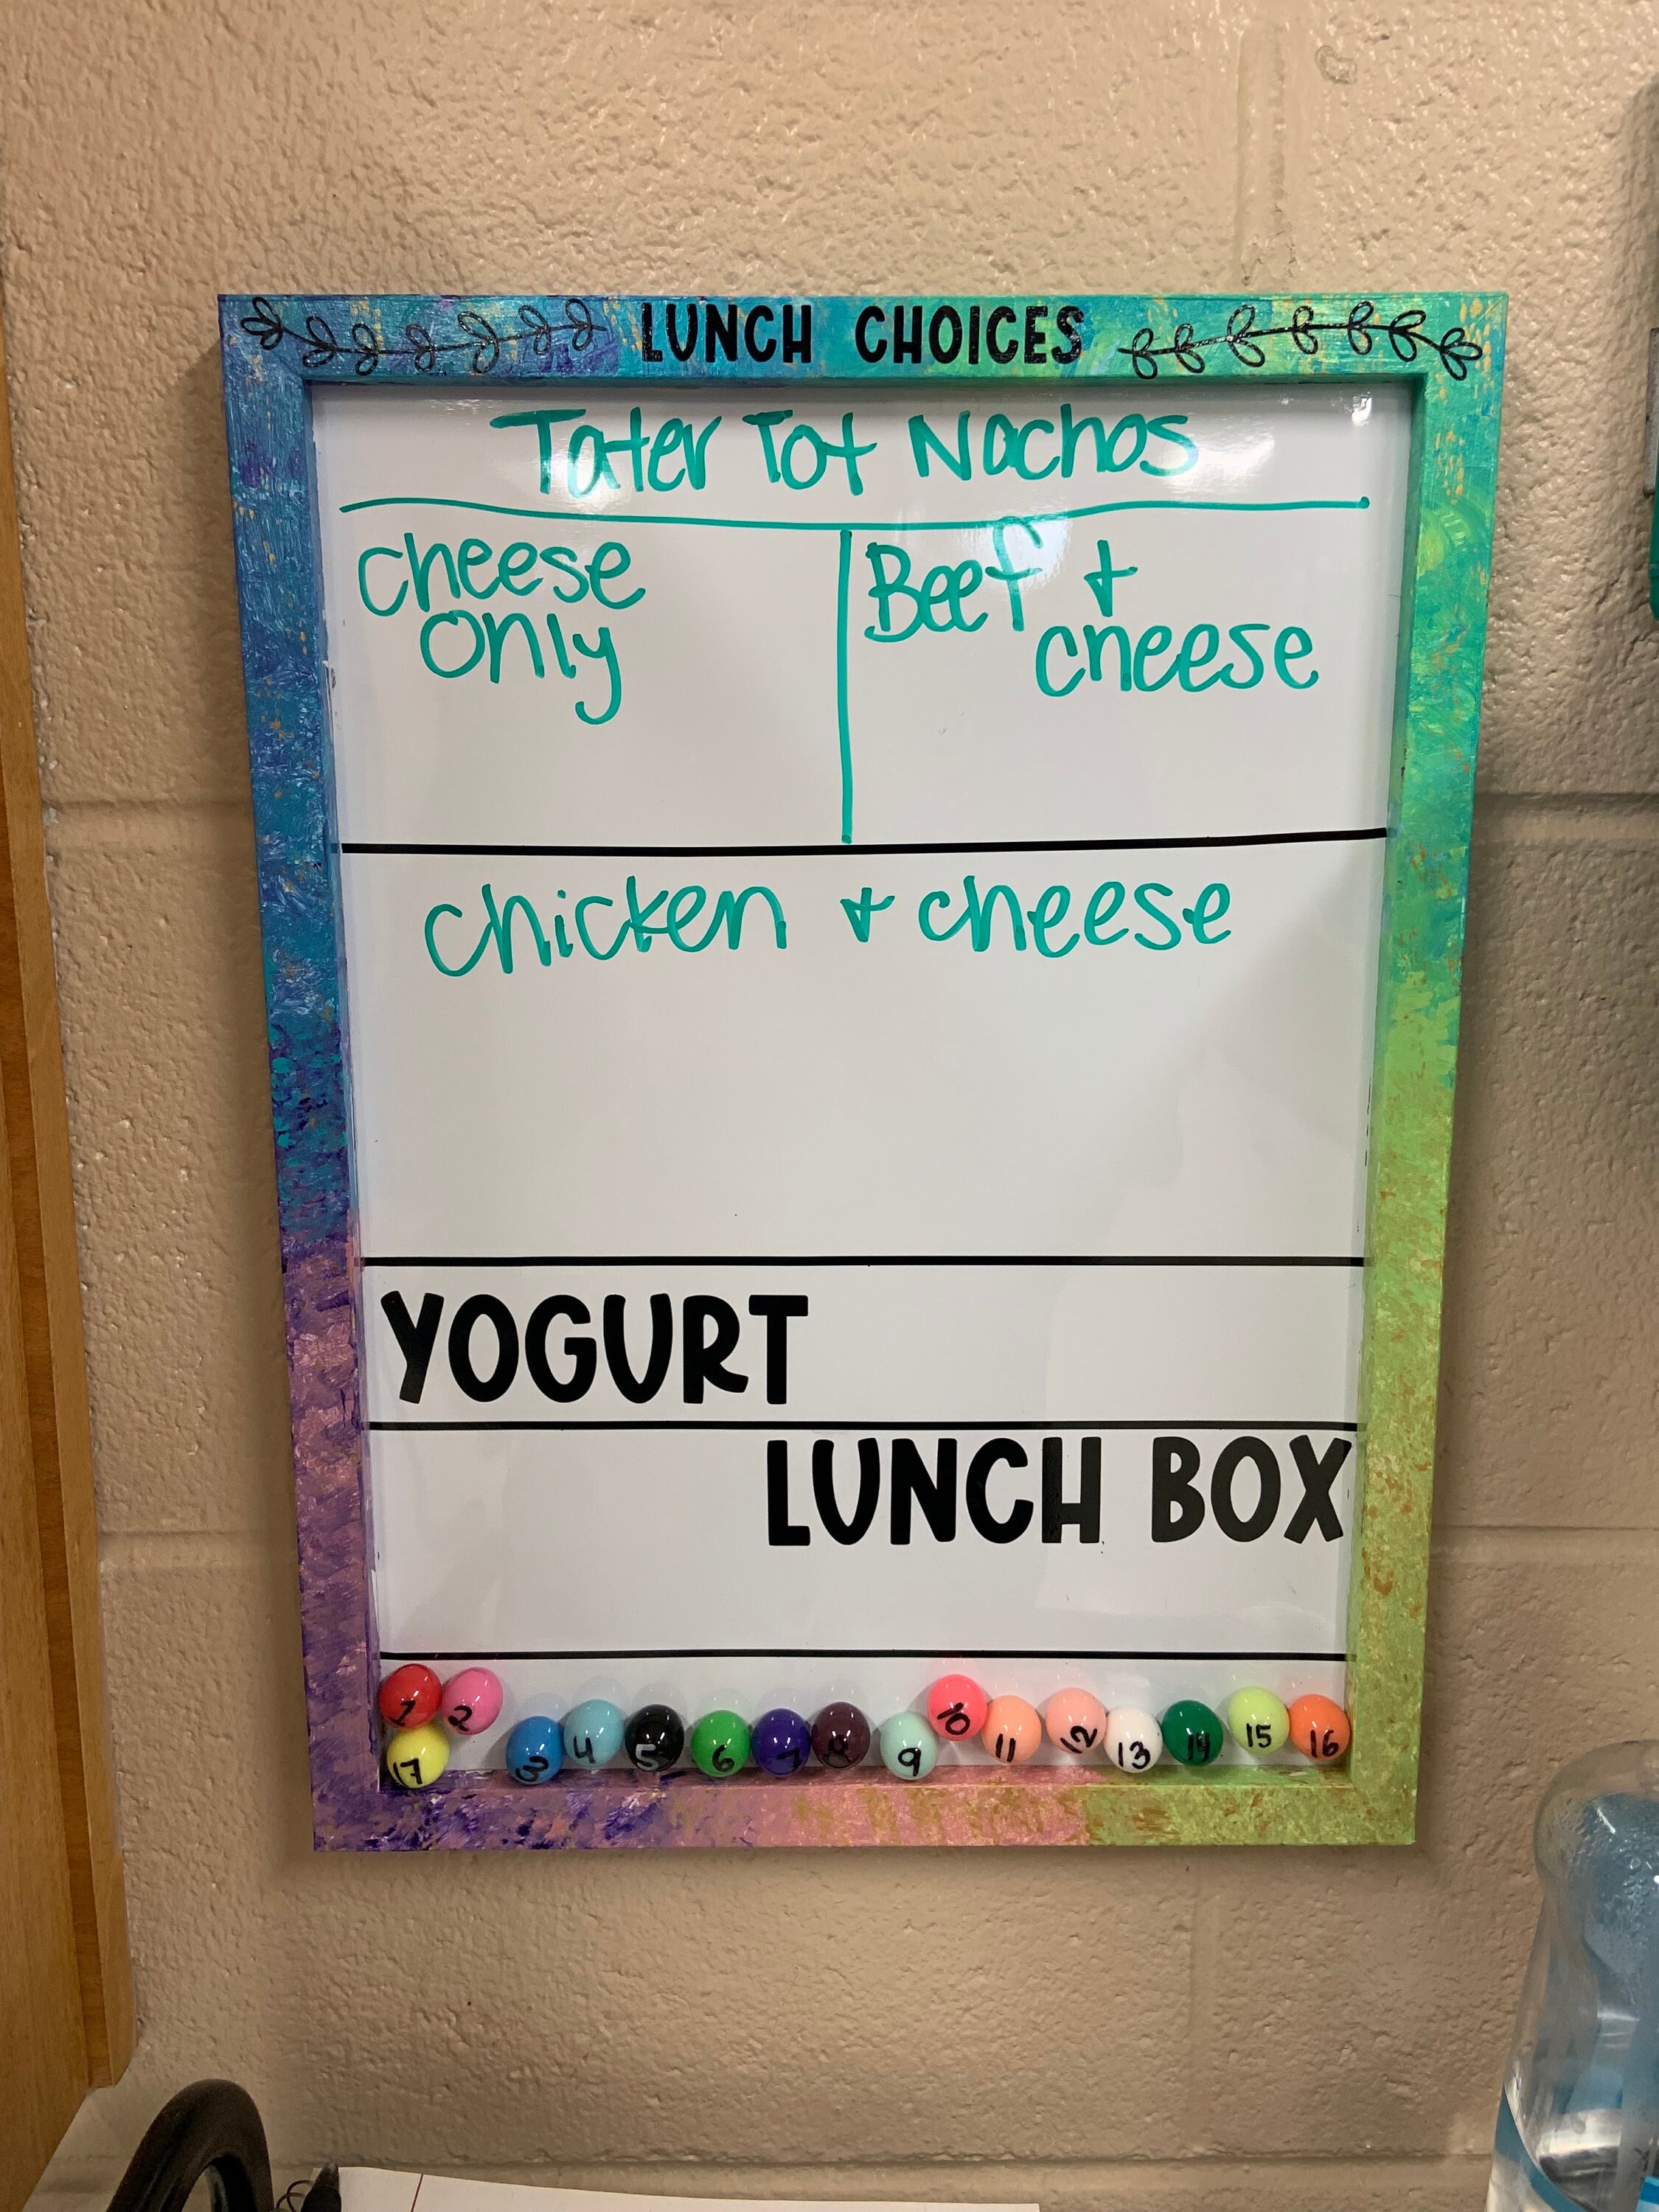 LUNCH CHOICES
Tater Tot Nachos
cheese
only
Beef +
cheese
chicken + cheese
YOGURT
LUNCH BOX
1 2
17 3 4 5 6 7 8 9 10 11 12 13 14 15 16